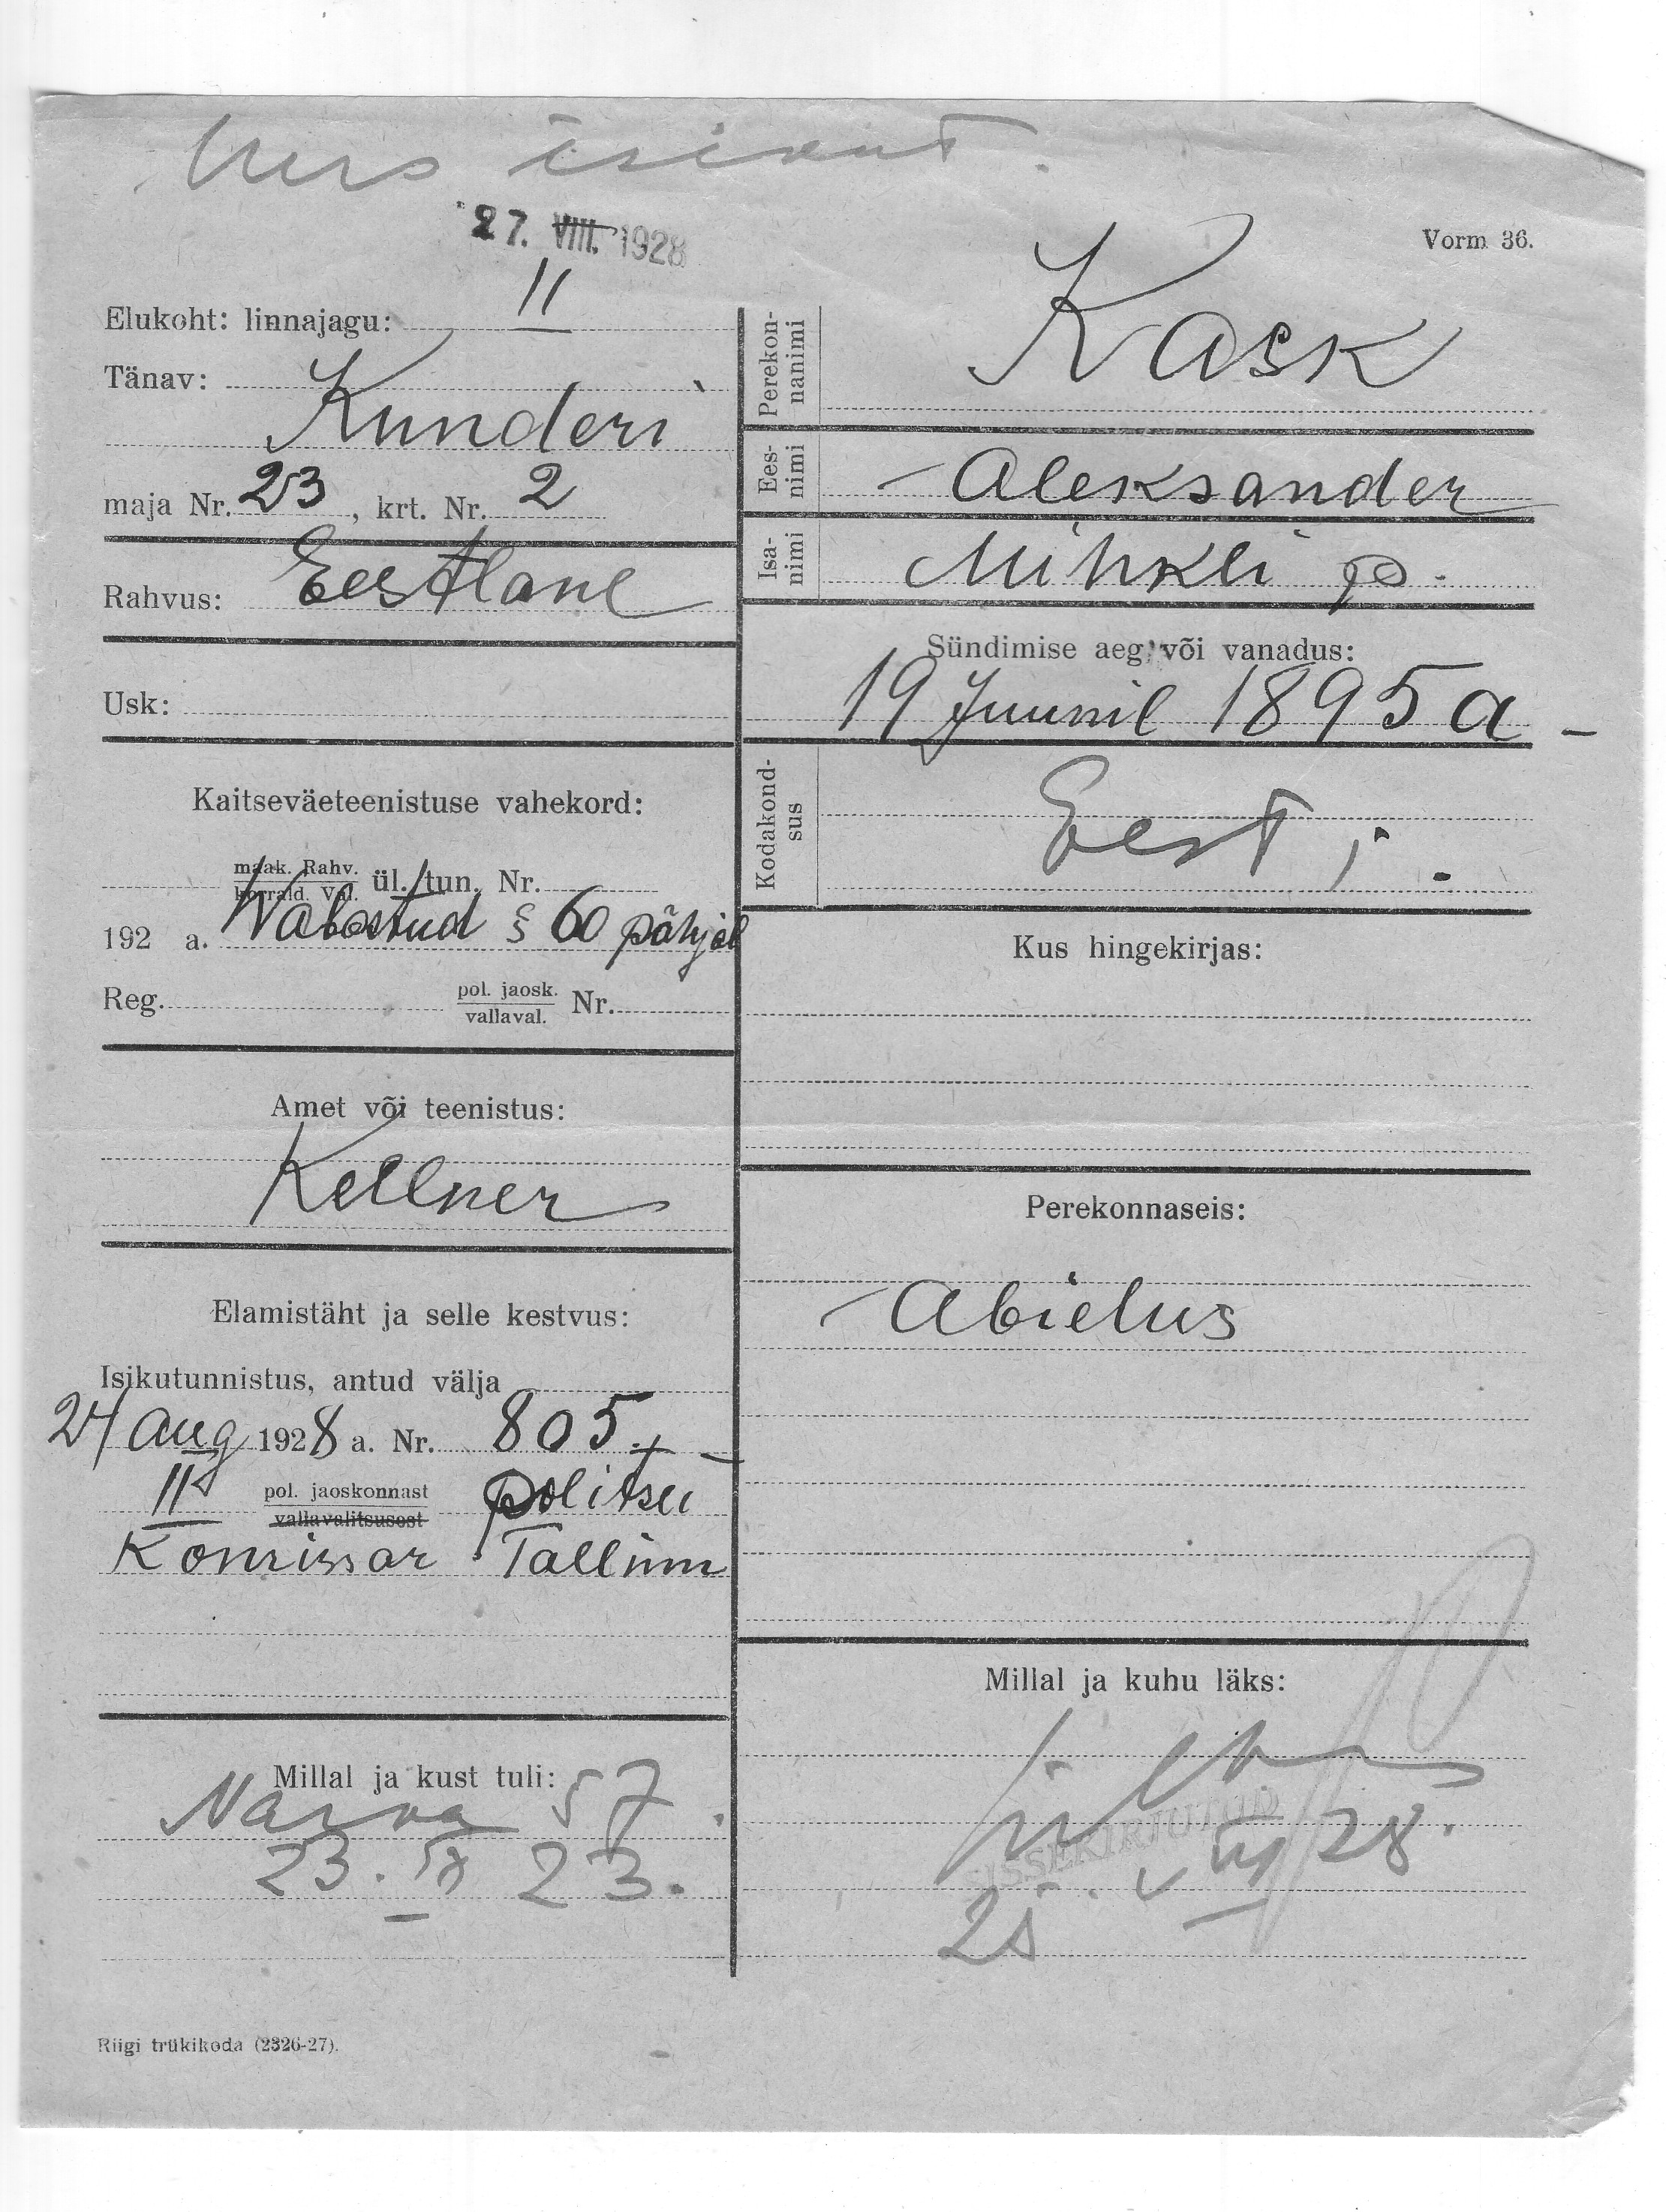 27. VIII. 1928
Vorm 36.
Elukoht: linnajagu: II
Tänav:
Kunderi
maja Nr. 23, krt. Nr. 2
Rahvus: Eestlane
Usk:
Kaitseväeteenistuse vahekord:
maak. Rahv.
korrald. Val. ül. tun. Nr.
192 a. Wabastud § 60 põhjal
Reg. pol. jaosk.
vallaval. Nr.
Amet või teenistus:
Kellner
Elamistäht ja selle kestvus:
Isikutunnistus, antud välja
24 aug 1928 a. Nr. 805.
II pol. jaoskonnast politsei
vallavalitsusest
Komissar Tallinn
Millal ja kust tuli:
Narva 57.
23. IX 23.
Perekon-
nanimi
Kask
Ees-
nimi
Aleksander
Isa-
nimi
Mihkli p.
Sündimise aeg või vanadus:
19 Juunil 1895 a
Kodakond-
sus
Eesti.
Kus hingekirjas:
Perekonnaseis:
Abielus
Millal ja kuhu läks:
SISSEKIRJUTUD
28.
Riigi trükikoda (2326-27).